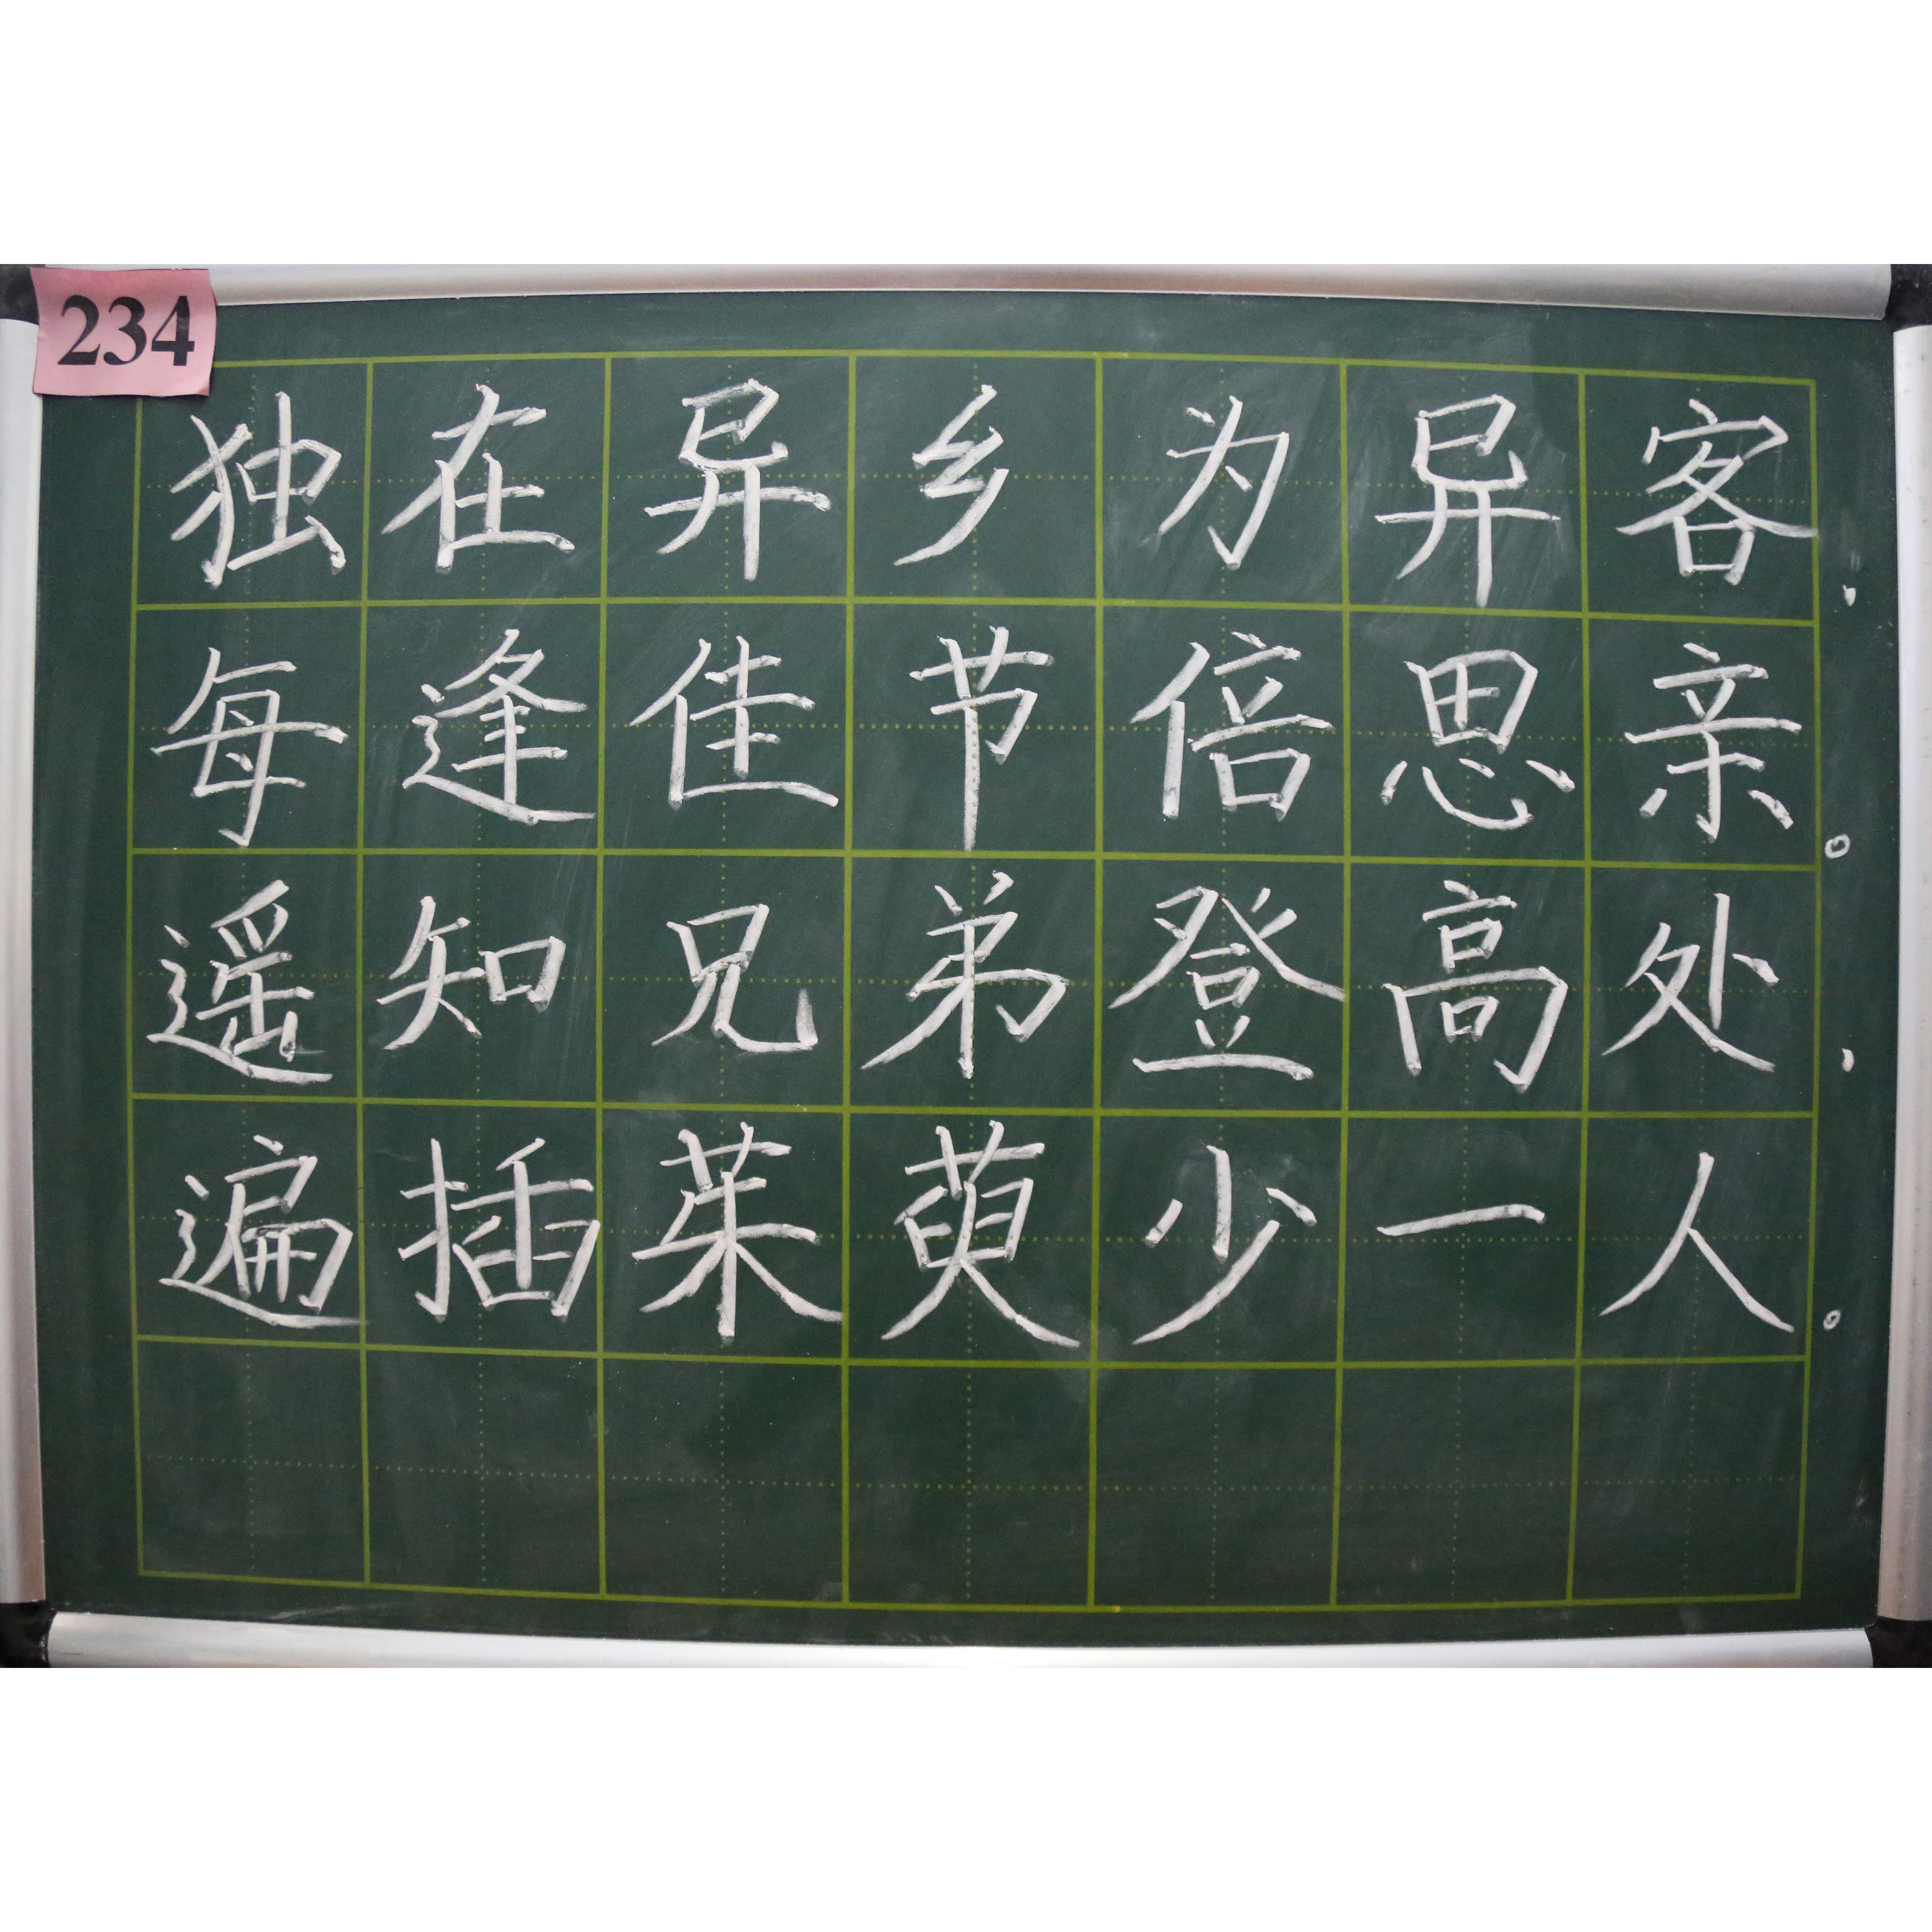 234
独在异乡为异客，
每逢佳节倍思亲。
遥知兄弟登高处，
遍插茱萸少一人。